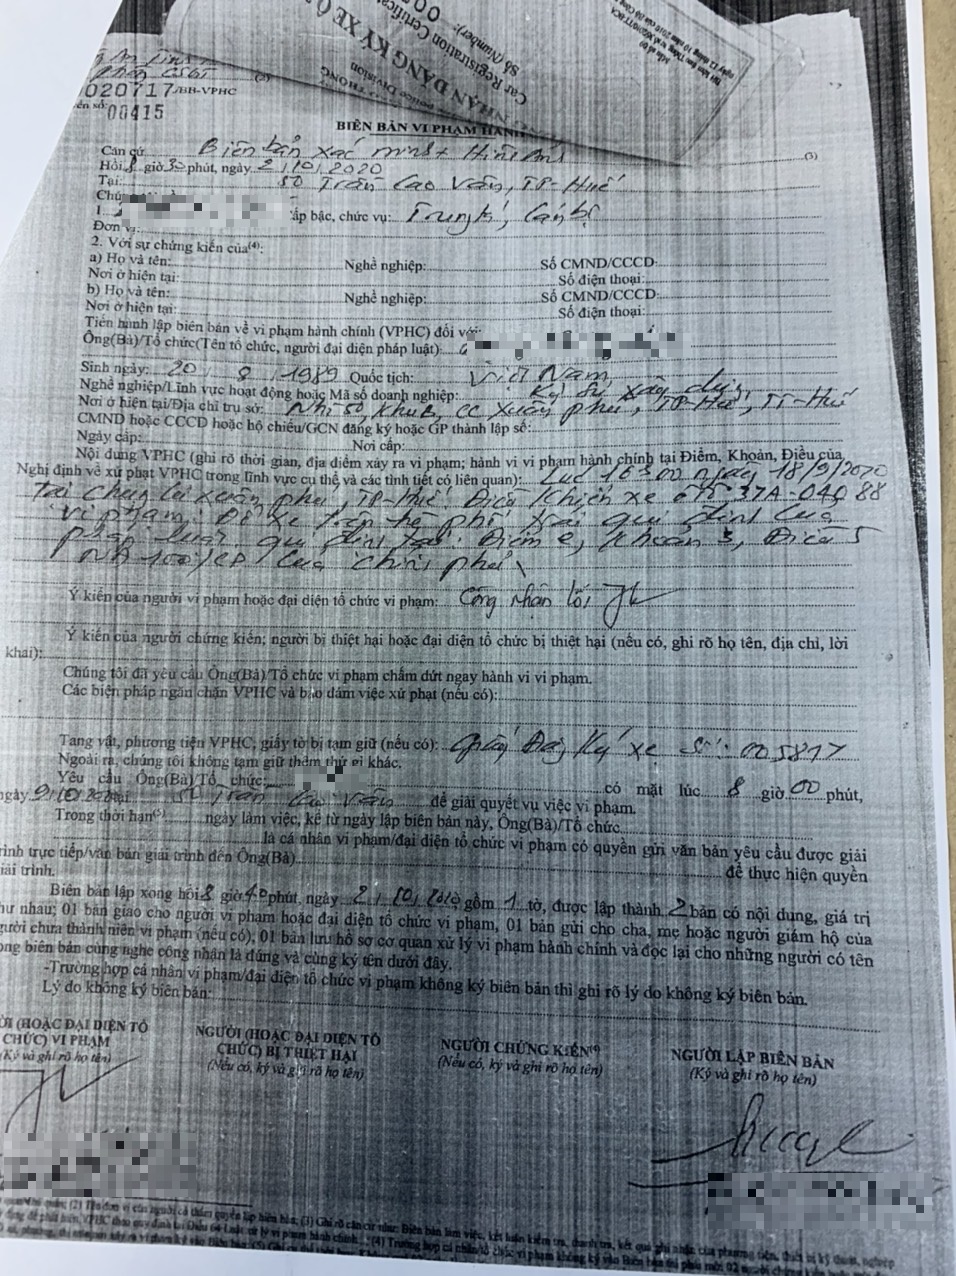 Số (Number):
Car Registration Certificate
NHẬN ĐĂNG KÝ XE Ô
020717/BB-VPHC
00415
BIÊN BẢN VI PHẠM HÀNH
Căn cứ: Biên bản xác minh + Hình ảnh (3)
Hồi 8 giờ 30 phút, ngày 2/10/2020
Tại: 50 Trần Cao Vân, TP-Huế
1. cấp bậc, chức vụ: Trung tá, Cán bộ
Đơn vị:
2. Với sự chứng kiến của(4):
a) Họ và tên: Nghề nghiệp: Số CMND/CCCD:
Nơi ở hiện tại: Số điện thoại:
b) Họ và tên: Nghề nghiệp: Số CMND/CCCD:
Nơi ở hiện tại: Số điện thoại:
Tiến hành lập biên bản về vi phạm hành chính (VPHC) đối với:
Ông(Bà)/Tổ chức(Tên tổ chức, người đại diện pháp luật):
Sinh ngày: 20/8/1989 Quốc tịch: Việt Nam
Nghề nghiệp/Lĩnh vực hoạt động hoặc Mã số doanh nghiệp: Kỹ sư xây dựng
Nơi ở hiện tại/Địa chỉ trụ sở: Nhà số, khu B, CC Xuân phú, TP-Huế, TT-Huế
CMND hoặc CCCD hoặc hộ chiếu/GCN đăng ký hoặc GP thành lập số:
Ngày cấp: Nơi cấp:
Nội dung VPHC (ghi rõ thời gian, địa điểm xảy ra vi phạm; hành vi vi phạm hành chính tại Điểm, Khoản, Điều của
Nghị định về xử phạt VPHC trong lĩnh vực cụ thể và các tình tiết có liên quan): Lúc 16h00 ngày 18/9/2020
tại chung cư xuân phú, TP-Huế. Điều khiển xe ôtô 37A-040 88
vi phạm: Đỗ xe trên hè phố trái qui định của
pháp luật, qui định tại: Điểm e, Khoản 3, Điều 5
NĐ 100/CP của chính phủ
Ý kiến của người vi phạm hoặc đại diện tổ chức vi phạm: Công nhận lỗi
Ý kiến của người chứng kiến; người bị thiệt hại hoặc đại diện tổ chức bị thiệt hại (nếu có, ghi rõ họ tên, địa chỉ, lời
khai):
Chúng tôi đã yêu cầu Ông(Bà)/Tổ chức vi phạm chấm dứt ngay hành vi vi phạm.
Các biện pháp ngăn chặn VPHC và bảo đảm việc xử phạt (nếu có):
Tang vật, phương tiện VPHC, giấy tờ bị tạm giữ (nếu có): Giấy Đăng Ký xe số: 005817
Ngoài ra, chúng tôi không tạm giữ thêm thứ gì khác.
Yêu cầu Ông(Bà)/Tổ chức: có mặt lúc 8 giờ 00 phút,
ngày 9/10/2020 tại 50 Trần Cao Vân để giải quyết vụ việc vi phạm.
Trong thời hạn(5) ngày làm việc, kể từ ngày lập biên bản này, Ông(Bà)/Tổ chức
là cá nhân vi phạm/đại diện tổ chức vi phạm có quyền gửi văn bản yêu cầu được giải
trình trực tiếp/văn bản giải trình đến Ông(Bà) để thực hiện quyền
giải trình.
Biên bản lập xong hồi 8 giờ 40 phút, ngày 2/10/2020 gồm 1 tờ, được lập thành 2 bản có nội dung, giá trị
như nhau; 01 bản giao cho người vi phạm hoặc đại diện tổ chức vi phạm, 01 bản gửi cho cha, mẹ hoặc người giám hộ của
người chưa thành niên vi phạm (nếu có), 01 bản lưu hồ sơ cơ quan xử lý vi phạm hành chính và đọc lại cho những người có tên
trong biên bản cùng nghe công nhận là đúng và cùng ký tên dưới đây.
-Trường hợp cá nhân vi phạm/đại diện tổ chức vi phạm không ký biên bản thì ghi rõ lý do không ký biên bản.
Lý do không ký biên bản:
ƯỜI (HOẶC ĐẠI DIỆN TỔ CHỨC) VI PHẠM
(Ký và ghi rõ họ tên)
NGƯỜI (HOẶC ĐẠI DIỆN TỔ CHỨC) BỊ THIỆT HẠI
(Nếu có, ký và ghi rõ họ tên)
NGƯỜI CHỨNG KIẾN
(Nếu có, ký và ghi rõ họ tên)
NGƯỜI LẬP BIÊN BẢN
(Ký và ghi rõ họ tên)